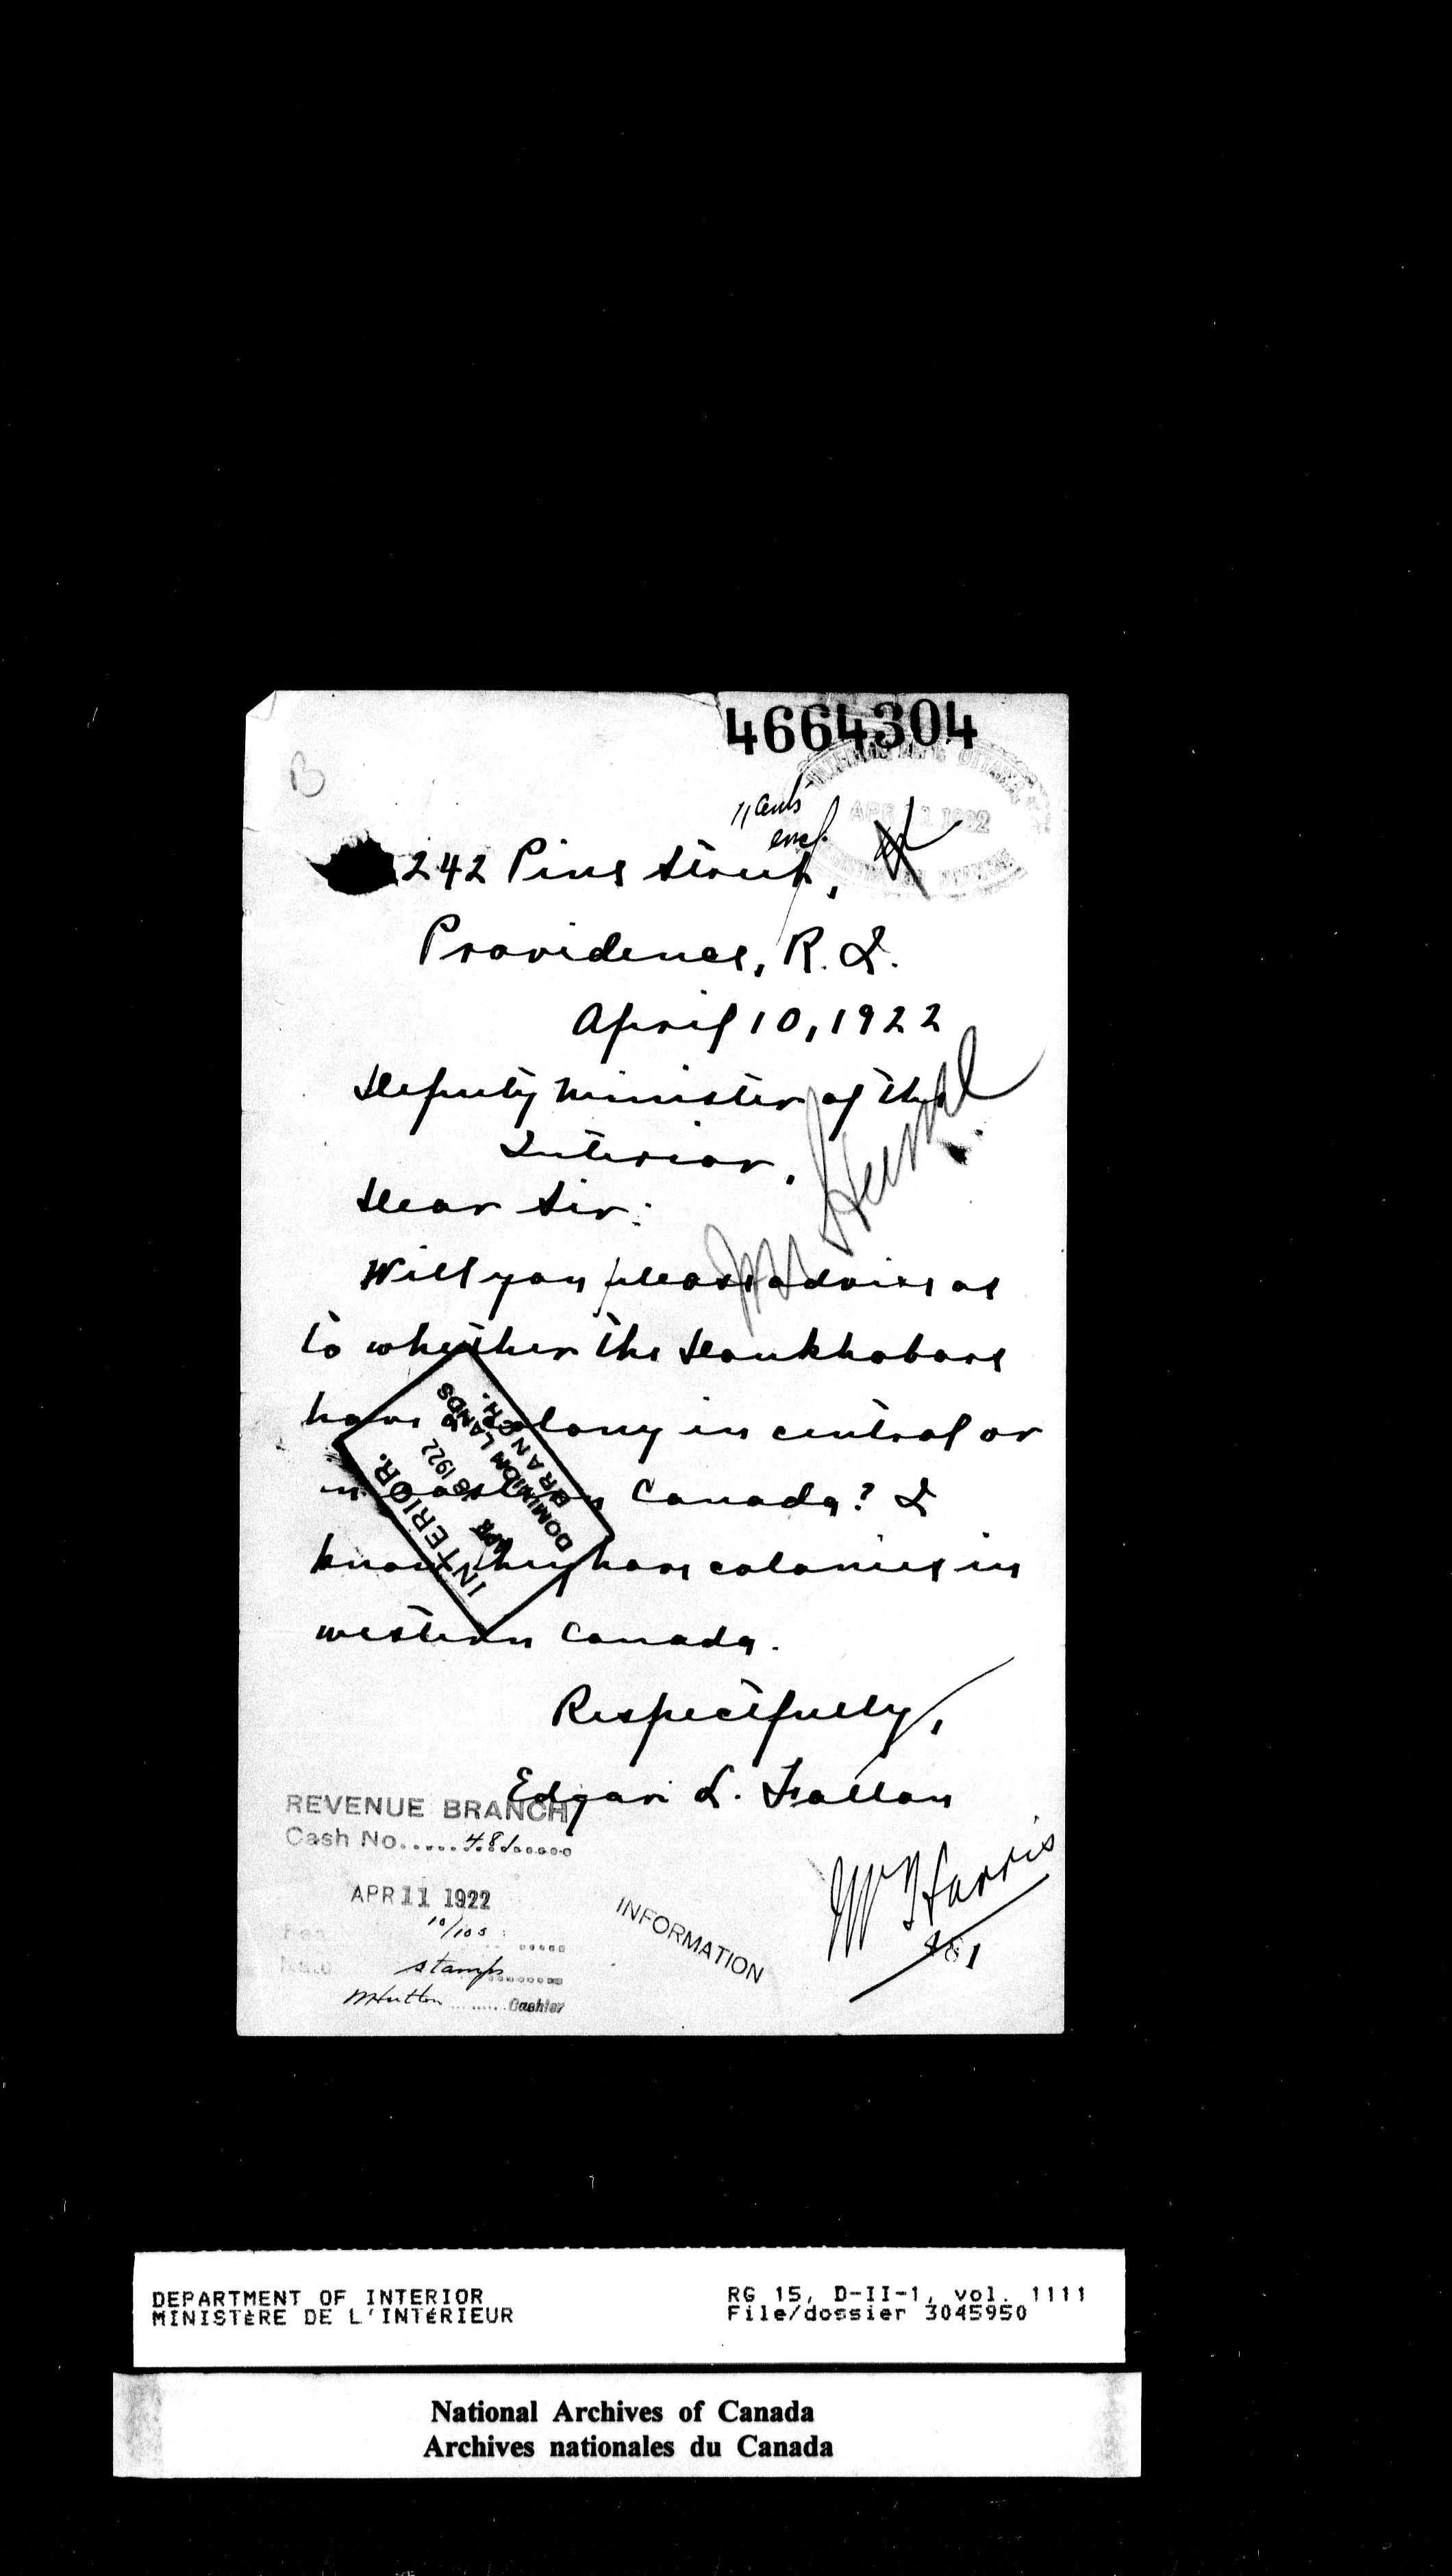 4664304
B
INTERIOR DEPT. OTTAWA
APR 11 1922
11 cents
encl.
242 Pine Street,
Providence, R. I.
April 10, 1922
Deputy Minister of the
Interior,
Dear Sir:
Will you please advise as
to whether the Doukhobors
have a colony in central or
in eastern Canada? I
know they have colonies in
western Canada.
Respectfully,
Edgar L. Fallon
INTERIOR.
APR 18 1922
DOMINION LANDS
BRANCH.
Mr Hume
REVENUE BRANCH
Cash No.....481......
APR 11 1922
10/100
stamps
MHutton ........ Cashier
INFORMATION
Mr Harris
481
DEPARTMENT OF INTERIOR
MINISTÈRE DE L'INTÉRIEUR
RG 15, D-II-1, vol. 1111
File/dossier 3045950
National Archives of Canada
Archives nationales du Canada